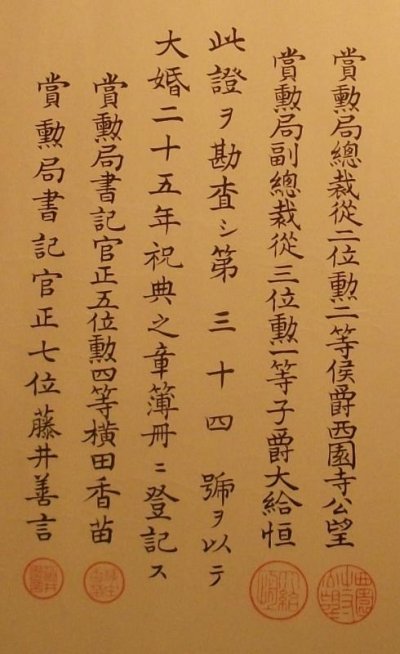 賞勲局總裁從二位勲二等侯爵西園寺公望
賞勲局副總裁從三位勲一等子爵大給恒
此證ヲ勘査シ第三十四號ヲ以テ
大婚二十五年祝典之章簿冊ニ登記ス
賞勲局書記官正五位勲四等横田香苗
賞勲局書記官正七位藤井善言